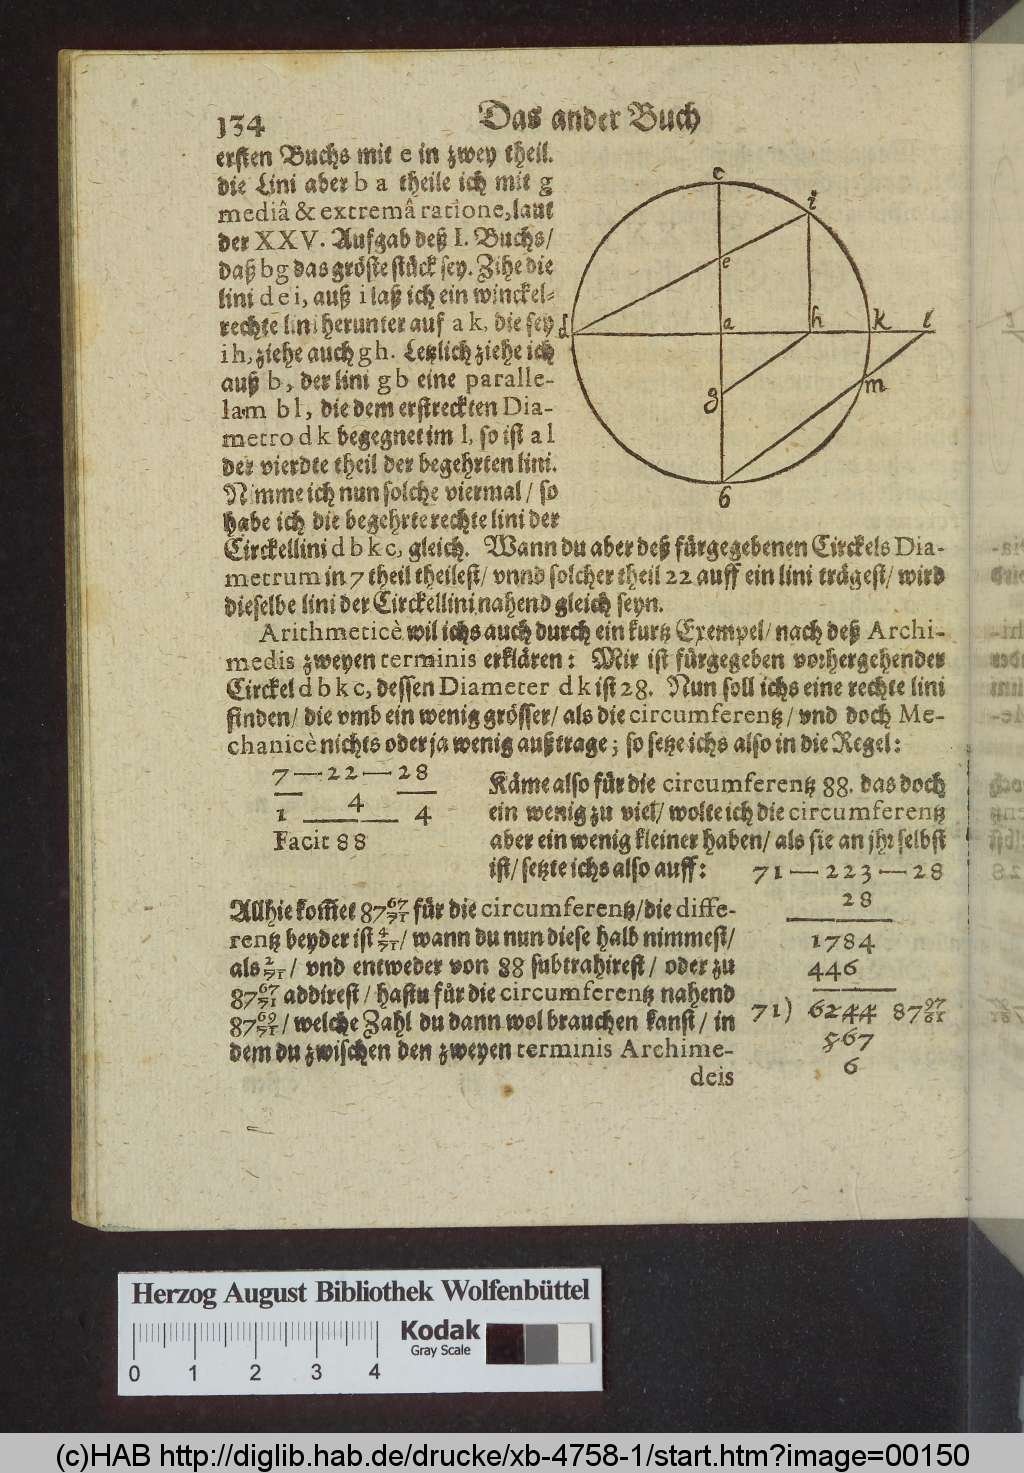 134 Das ander Buch
ersten Buchs mit e in zwey theil.
die Lini aber b a theile ich mit g
mediâ & extremâ ratione, laut
der XXV. Aufgab deß I. Buchs/
daß b g das gröste stück sey. Zihe die
lini d e i, auß i laß ich ein winckel-
rechte lini herunter auf a k, die sey
i h, ziehe auch g h. Letzlich ziehe ich
auß b, der lini g b eine paralle-
lam b l, die dem erstreckten Dia-
metro d k begegnet im l, so ist a l
der vierdte theil der begehrten lini.
Nimme ich nun solche viermal/ so
habe ich die begehrte rechte lini der
Circkellini d b k c, gleich. Wann du aber deß fürgegebenen Circkels Dia-
metrum in 7 theil theilest/ vnnd solcher theil 22 auff ein lini trägest/ wird
dieselbe lini der Circkellini nahend gleich seyn.
c
i
e
d
a
h
k
l
g
m
b
Arithmeticè wil ichs auch durch ein kurtz Exempel/ nach deß Archi-
medis zweyen terminis erklären: Mir ist fürgegeben vorhergehender
Circkel d b k c, dessen Diameter d k ist 28. Nun soll ichs eine rechte lini
finden/ die vmb ein wenig grösser/ als die circumferentz/ vnd doch Me-
chanicè nichts oder ja wenig außtrage; so setze ichs also in die Regel:
7 — 22 — 28
1 4 4
Facit 88
Käme also für die circumferentz 88. das doch
ein wenig zu viel/ wolte ich die circumferentz
aber ein wenig kleiner haben/ als sie an jhr selbst
ist/ setzte ichs also auff: 71 — 223 — 28
28
1784
446
71) 6244 87 97/61
567
6
Allhie kom̃et 87 67/71 für die circumferentz/ die diffe-
rentz beyder ist 4/71/ wann du nun diese halb nimmest/
als 2/71/ vnd entweder von 88 subtrahirest/ oder zu
87 67/71 addirest/ hastu für die circumferentz nahend
87 69/71/ welche Zahl du dann wol brauchen kanst/ in
dem du zwischen den zweyen terminis Archime-
deis
Herzog August Bibliothek Wolfenbüttel
Kodak
Gray Scale
0 1 2 3 4
(c)HAB http://diglib.hab.de/drucke/xb-4758-1/start.htm?image=00150